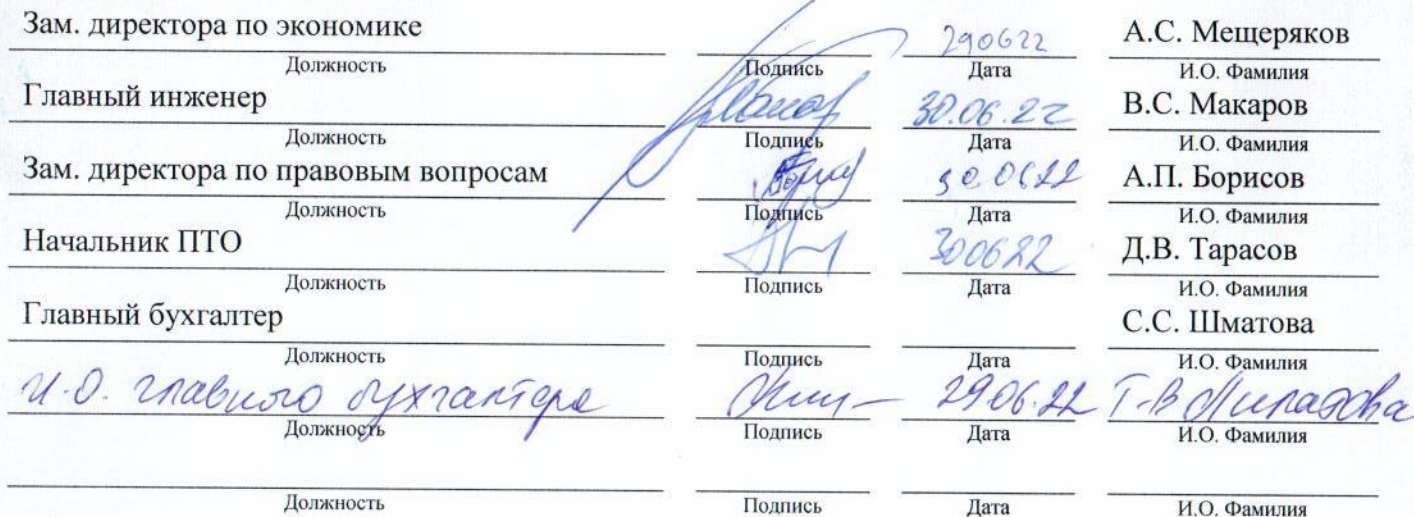 Зам. директора по экономике 290622 А.С. Мещеряков
Должность Подпись Дата И.О. Фамилия
Главный инженер 30.06.22 В.С. Макаров
Должность Подпись Дата И.О. Фамилия
Зам. директора по правовым вопросам 30.0622 А.П. Борисов
Должность Подпись Дата И.О. Фамилия
Начальник ПТО 300622 Д.В. Тарасов
Должность Подпись Дата И.О. Фамилия
Главный бухгалтер С.С. Шматова
Должность Подпись Дата И.О. Фамилия
И.О. главного бухгалтера 29.06.22 Т.В
Должность Подпись Дата И.О. Фамилия
Должность Подпись Дата И.О. Фамилия